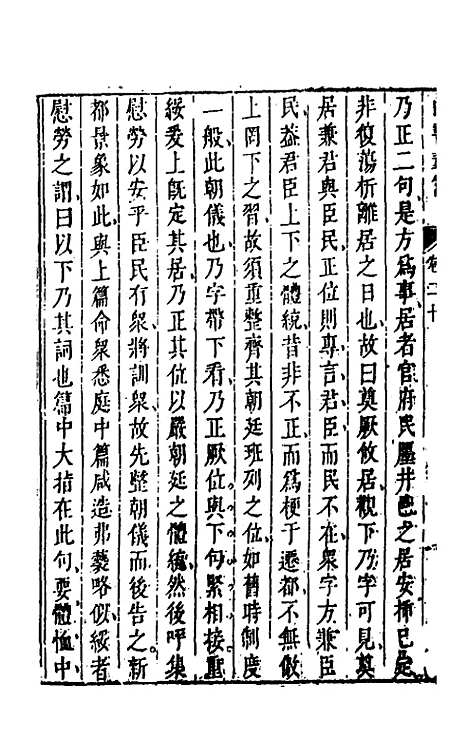 卷二十
乃正二句是方爲事居者官府民廛井邑之居安插已定
非復蕩析離居之日也故曰奠厥攸居觀下乃字可見奠
居兼君與臣民正位則專言君臣而民不在衆字方兼臣
民葢君臣上下之體統昔非不正而爲梗于遷都不無傲
上罔下之習故須重整齊其朝廷班列之位如舊時制度
一般此朝儀也乃字帶下看乃正厥位與下句緊相接重
綏爰上旣定其居乃正其位以嚴朝廷之體統然後呼集
慰勞以安乎臣民有衆將訓衆故先整朝儀而後告之新
都景象如此與上篇命衆悉庭中篇咸造弗䙝略似綏者
慰勞之謂曰以下乃其詞也篇中大指在此句要體恤中